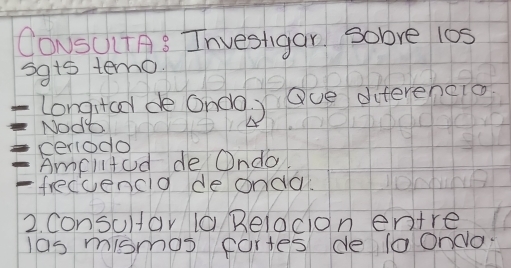 CONSULTA: Investigar. sobre los
sgts temo.
- Longitad de Onda. Que diferencia.
- Nodo
- Periodo
- Amplitud de Onda.
- frecuencia de onda.
2. Consultar la Relacion entre
las mismas partes de la Onda.